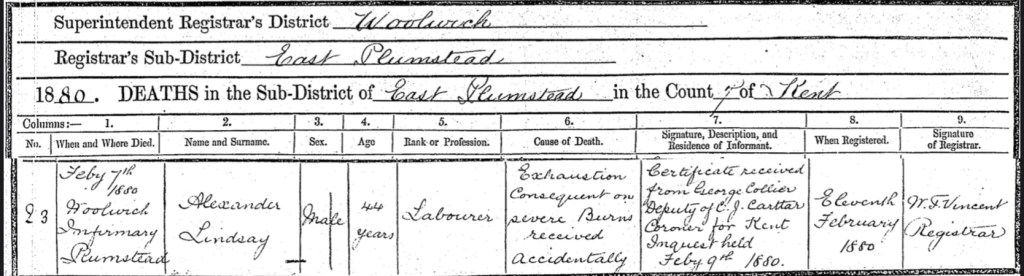 Superintendent Registrar's District Woolwich
Registrar's Sub-District East Plumstead
1880. DEATHS in the Sub-District of East Plumstead in the County of Kent
Columns:— 1. 2. 3. 4. 5. 6. 7. 8. 9.
No. When and Where Died. Name and Surname. Sex. Age Rank or Profession. Cause of Death. Signature, Description, and Residence of Informant. When Registered. Signature of Registrar.
23
Feby 7th
1880
Woolwich
Infirmary
Plumstead
Alexander
Lindsay
Male
44
years
Labourer
Exhaustion
Consequent on
severe Burns
received
accidentally
Certificate received
from George Collier
Deputy of C. J. Carttar
Coroner for Kent
Inquest held
Feby 9th 1880.
Eleventh
February
1880
W. T. Vincent
Registrar